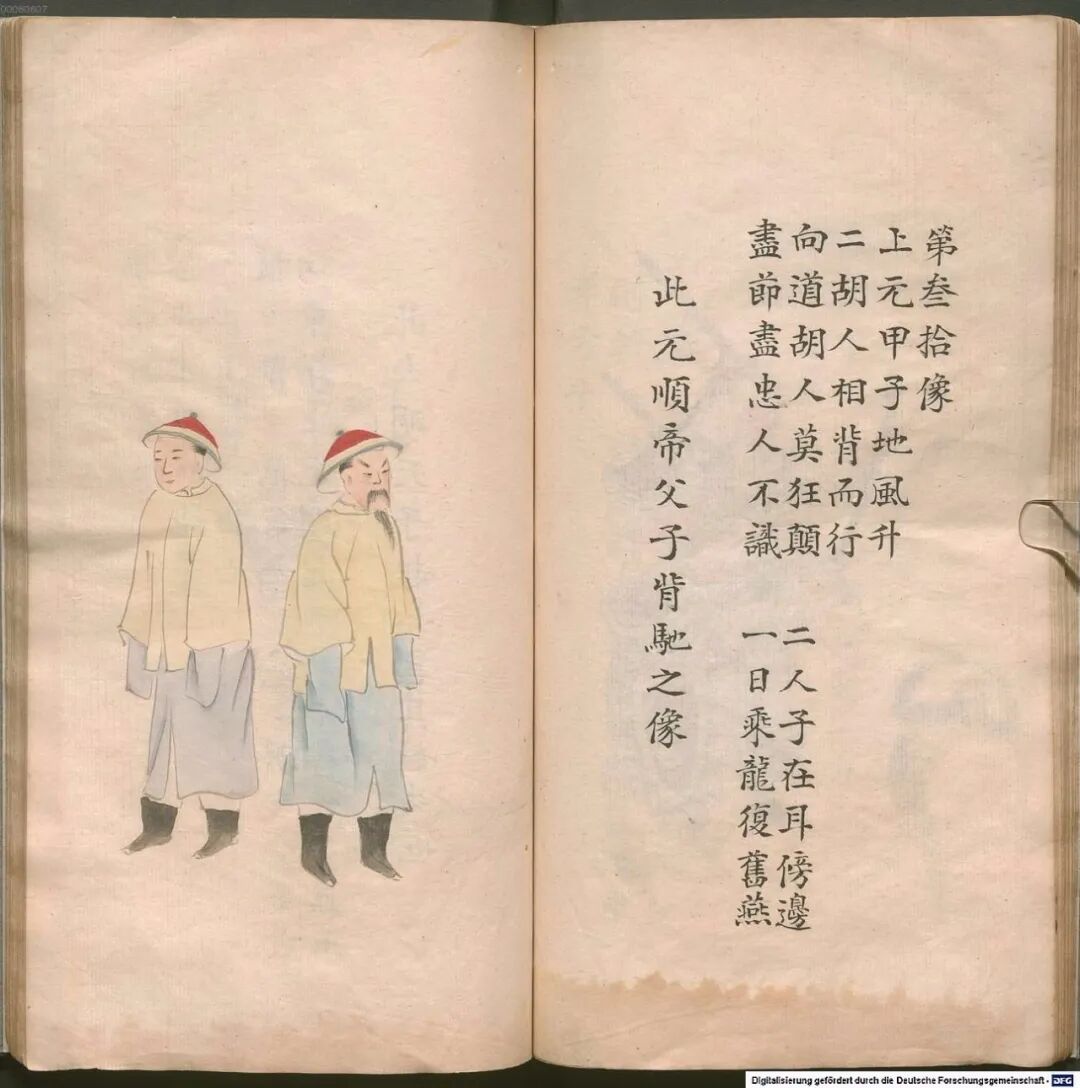 00060607
第叁拾像
上元甲子地風升
二胡人相背而行
向道胡人莫狂顛 二人子在耳傍邊
盡節盡忠人不識 一日乘龍復舊燕
此元順帝父子背馳之像
Digitalisierung gefördert durch die Deutsche Forschungsgemeinschaft - DFG